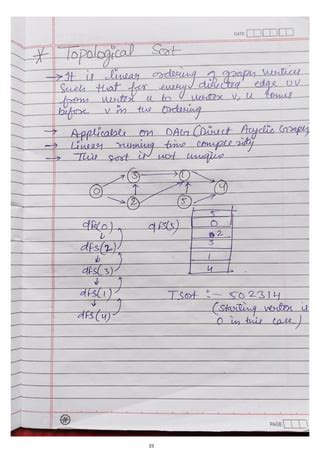 DATE
* Topological Sort
→ It is linear ordering of graph vertices
such that for every directed edge uv
from vertex u to vertex v, u comes
before v in the ordering
→ Applicable on DAGs (Direct Acyclic Graph)
→ Linear running time complexity
→ This sort is not unique
3 1
0 4
2 5
dfs(0) dfs(5)
dfs(2)
dfs(3)
dfs(1)
dfs(4)
5
0
2
3
1
4
Tsort :- 502314
(Starting vertex is
0 in this case)
PAGE
23